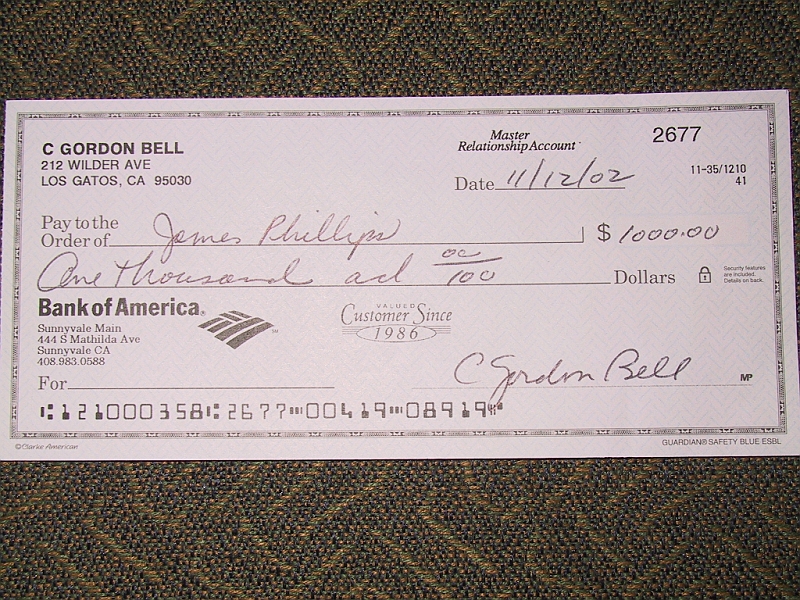 C GORDON BELL
212 WILDER AVE
LOS GATOS, CA 95030
Master
Relationship Account
2677
Date 11/12/02
11-35/1210
41
Pay to the
Order of James Phillips $ 1000.00
One thousand ad 00/100 Dollars
Security features
are included.
Details on back.
Bank of America
Sunnyvale Main
444 S Mathilda Ave
Sunnyvale CA
408.983.0588
VALUED
Customer Since
1986
For
C Gordon Bell MP
⑆121000358⑆2677⑉00419⑉08919⑈
©Clarke American
GUARDIAN® SAFETY BLUE ESBL